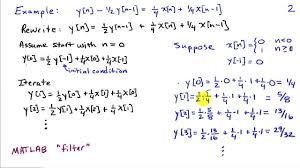 Example: y[n] - 1/2 y[n-1] = 1/4 x[n] + 1/4 x[n-1]
2
Rewrite: y[n] = 1/2 y[n-1] + 1/4 x[n] + 1/4 x[n-1]
Assume start with n=0
y[0] = 1/2 y[-1] + 1/4 x[0] + 1/4 x[-1]
initial condition
Iterate
y[1] = 1/2 y[0] + 1/4 x[1] + 1/4 x[0]
y[2] = 1/2 y[1] + 1/4 x[2] + 1/4 x[1]
⋮
MATLAB "filter"
Suppose x[n] = { 1 n≥0
0 n<0
y[0] = 1/2 · 0 + 1/4 · 1 + 1/4 · 0 = 1/4
y[1] = 1/2 · 1/4 + 1/4 · 1 + 1/4 · 1 = 5/8
y[2] = 1/2 · 5/8 + 1/4 · 1 + 1/4 · 1 = 13/16
y[3] = 1/2 · 13/16 + 1/4 · 1 + 1/4 · 1 = 29/32
⋮